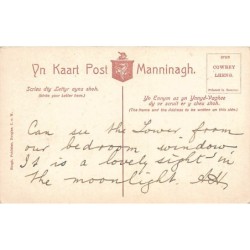 Yn Kaart Post Manninagh.
Scrieu dty Lettyr ayns shoh.
(Write your Letter here.)
Yn Ennym as yn Ynnyd-Vaghee
dy ve scruit er y cheu shoh.
(The Name and the Address to be written on this side.)
Can see the Tower from
our bedroom window.
It is a lovely sight in
the moonlight. AH